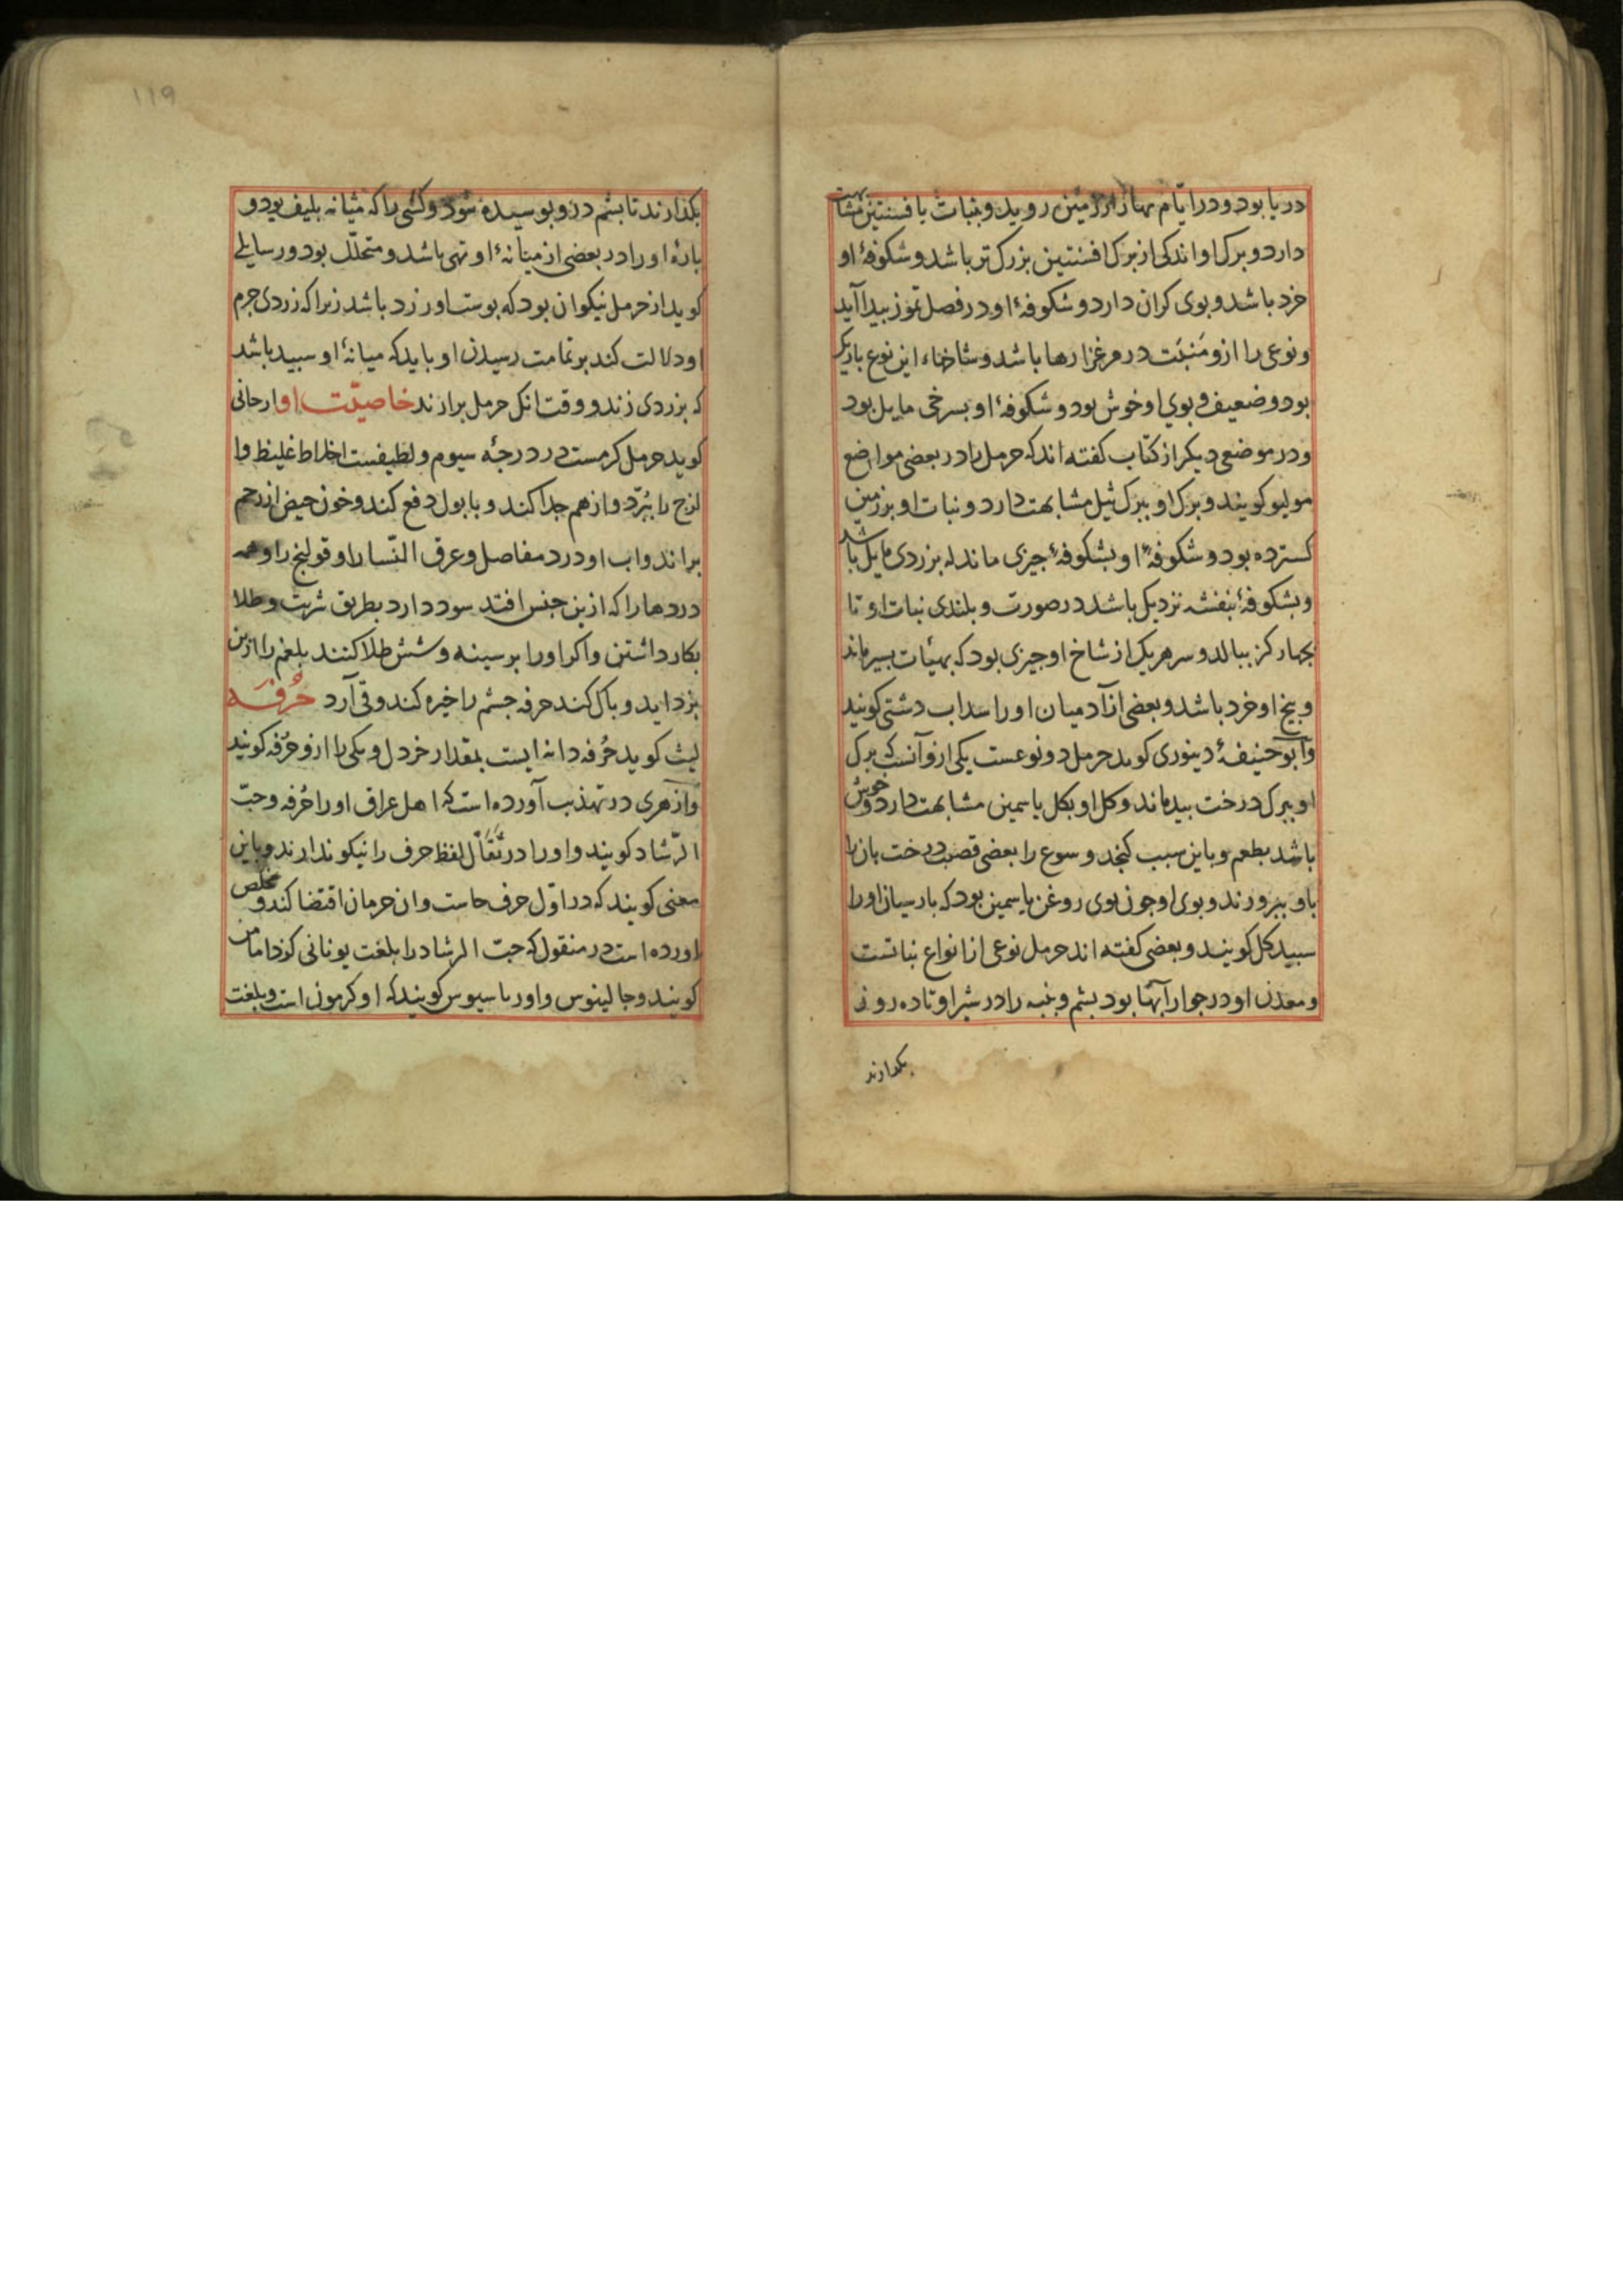 در یا بود و در ایام بهار از زمین روید و نبات با فسنتین مشابهت
دارد و برک او اندکی از برک افسنتین بزرک تر باشد و شکوفهٔ او
خرد باشد و بوی کران دارد و شکوفهٔ او در فصل تموز بیدا آید
و نوعی را ازو منبت در مرغزارها باشد و شاخهاء این نوع باریک
بود و ضعیف و بوی او خوش بود و شکوفهٔ او بسرخی مایل بود
و در موضعی دیکر از کتاب کفته اند که حرمل را در بعضی مواضع
مولیو کویند و برک او ببرک ثیل مشابهت دارد و نبات او بر زمین
کسترده بود و شکوفهٔ او بشکوفهٔ جیزی ماند که بزردی مایل باشد
و بشکوفهٔ بنفشه نزدیک باشد در صورت و بلندی نبات او تا
بجهار کز ببالد و سر هر یک از شاخ او جیزی بود که بهیئات بسیر ماند
و بیخ او خرد باشد و بعضی از آدمیان او را سداب دشتی کویند
و ابو حنیفهٔ دینوری کوید حرمل دو نوعست یکی ازو آنست که برک
او ببرک درخت بید ماند و کل او بکل یاسمین مشابهت دارد و خوش
باشد بطعم و باین سبب کنجد و سوع را بعضی قصب درخت بان را
باو ببرورند و بوی او جون بوی روغن یاسمین بود که بارسیان او را
سبید کل کویند و بعضی کفته اند حرمل نوعی از انواع نباتست
و معدن او در جوار آبها بود بشم و بنبه را در شیر او تا ده روز
بکذارند
۱۱۹
بکذارند تا بشم درو بوسیده شود و کسی را که مثانه بلیف بود و
بارهٔ او را در بعضی از میانهٔ او تهی باشد و متخلل بود و رسایلی
کوید از حرمل نیکو ان بود که بوست او زرد باشد زیرا که زردی جرم
او دلالت کند بر تمامت رسیدن او باید که میانهٔ او سبید باشد
که بزردی زند و وقت انک حرمل برارند خاصیّت او ارجانی
کوید حرمل کرمست در درجهٔ سیوم و لطیفست اخلاط غلیظ و ا
لزج را ببرّد و از هم جدا کند و با بول دفع کند و خون حیض از رحم
براند و اب او درد مفاصل و عرق النّسا را و قولنج را و همه
دردها را که ازین جنس افتد سود دارد بطریق شربت و طلا
بکار داشتن و اکر او را بر سینه و شش طلا کنند بلغم را ازین
بزداید و باک کند حرفه جشم را خیره کند و قی آرد حُرفَه
لیث کوید حُرفه دانه ایست بمقدار خردل و یکی را ازو حُرفه کویند
و ازهری در تهذیب آورده است که اهل عراق او را حُرفه و حبّ
الرّشاد کویند و او را در تفأل لفظ حرف را نیکو ندارند و باین
معنی کویند که در اوّل حرف حاست و ان حرمان اقتضا کند و مخلص
اورده است در منقول که حبّ الرشاد را بلغت یونانی کوذامامن
کویند و جالینوس و اوریباسیوس کویند که او کرمون است و بلغت